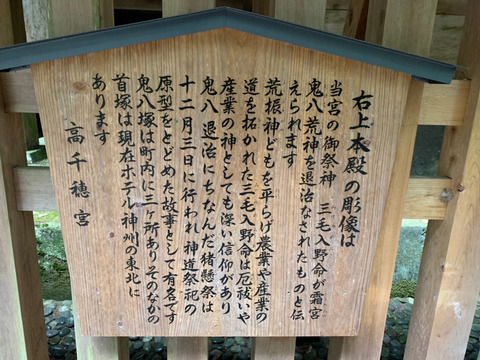 右上本殿の彫像は
当宮の御祭神 三毛入野命が霜宮
鬼八荒神を退治なされたものと伝
えられます
荒振神どもを平らげ農業や産業の
道を拓かれた三毛入野命は厄祓いや
産業の神としても深い信仰があり
鬼八 退治にちなんだ猪懸祭は
十二月三日に行われ神道祭祀の
原型をとどめた故事として有名です
鬼八塚は町内に三ヶ所ありそのなかの
首塚は現在ホテル神州の東北に
あります
高千穂宮